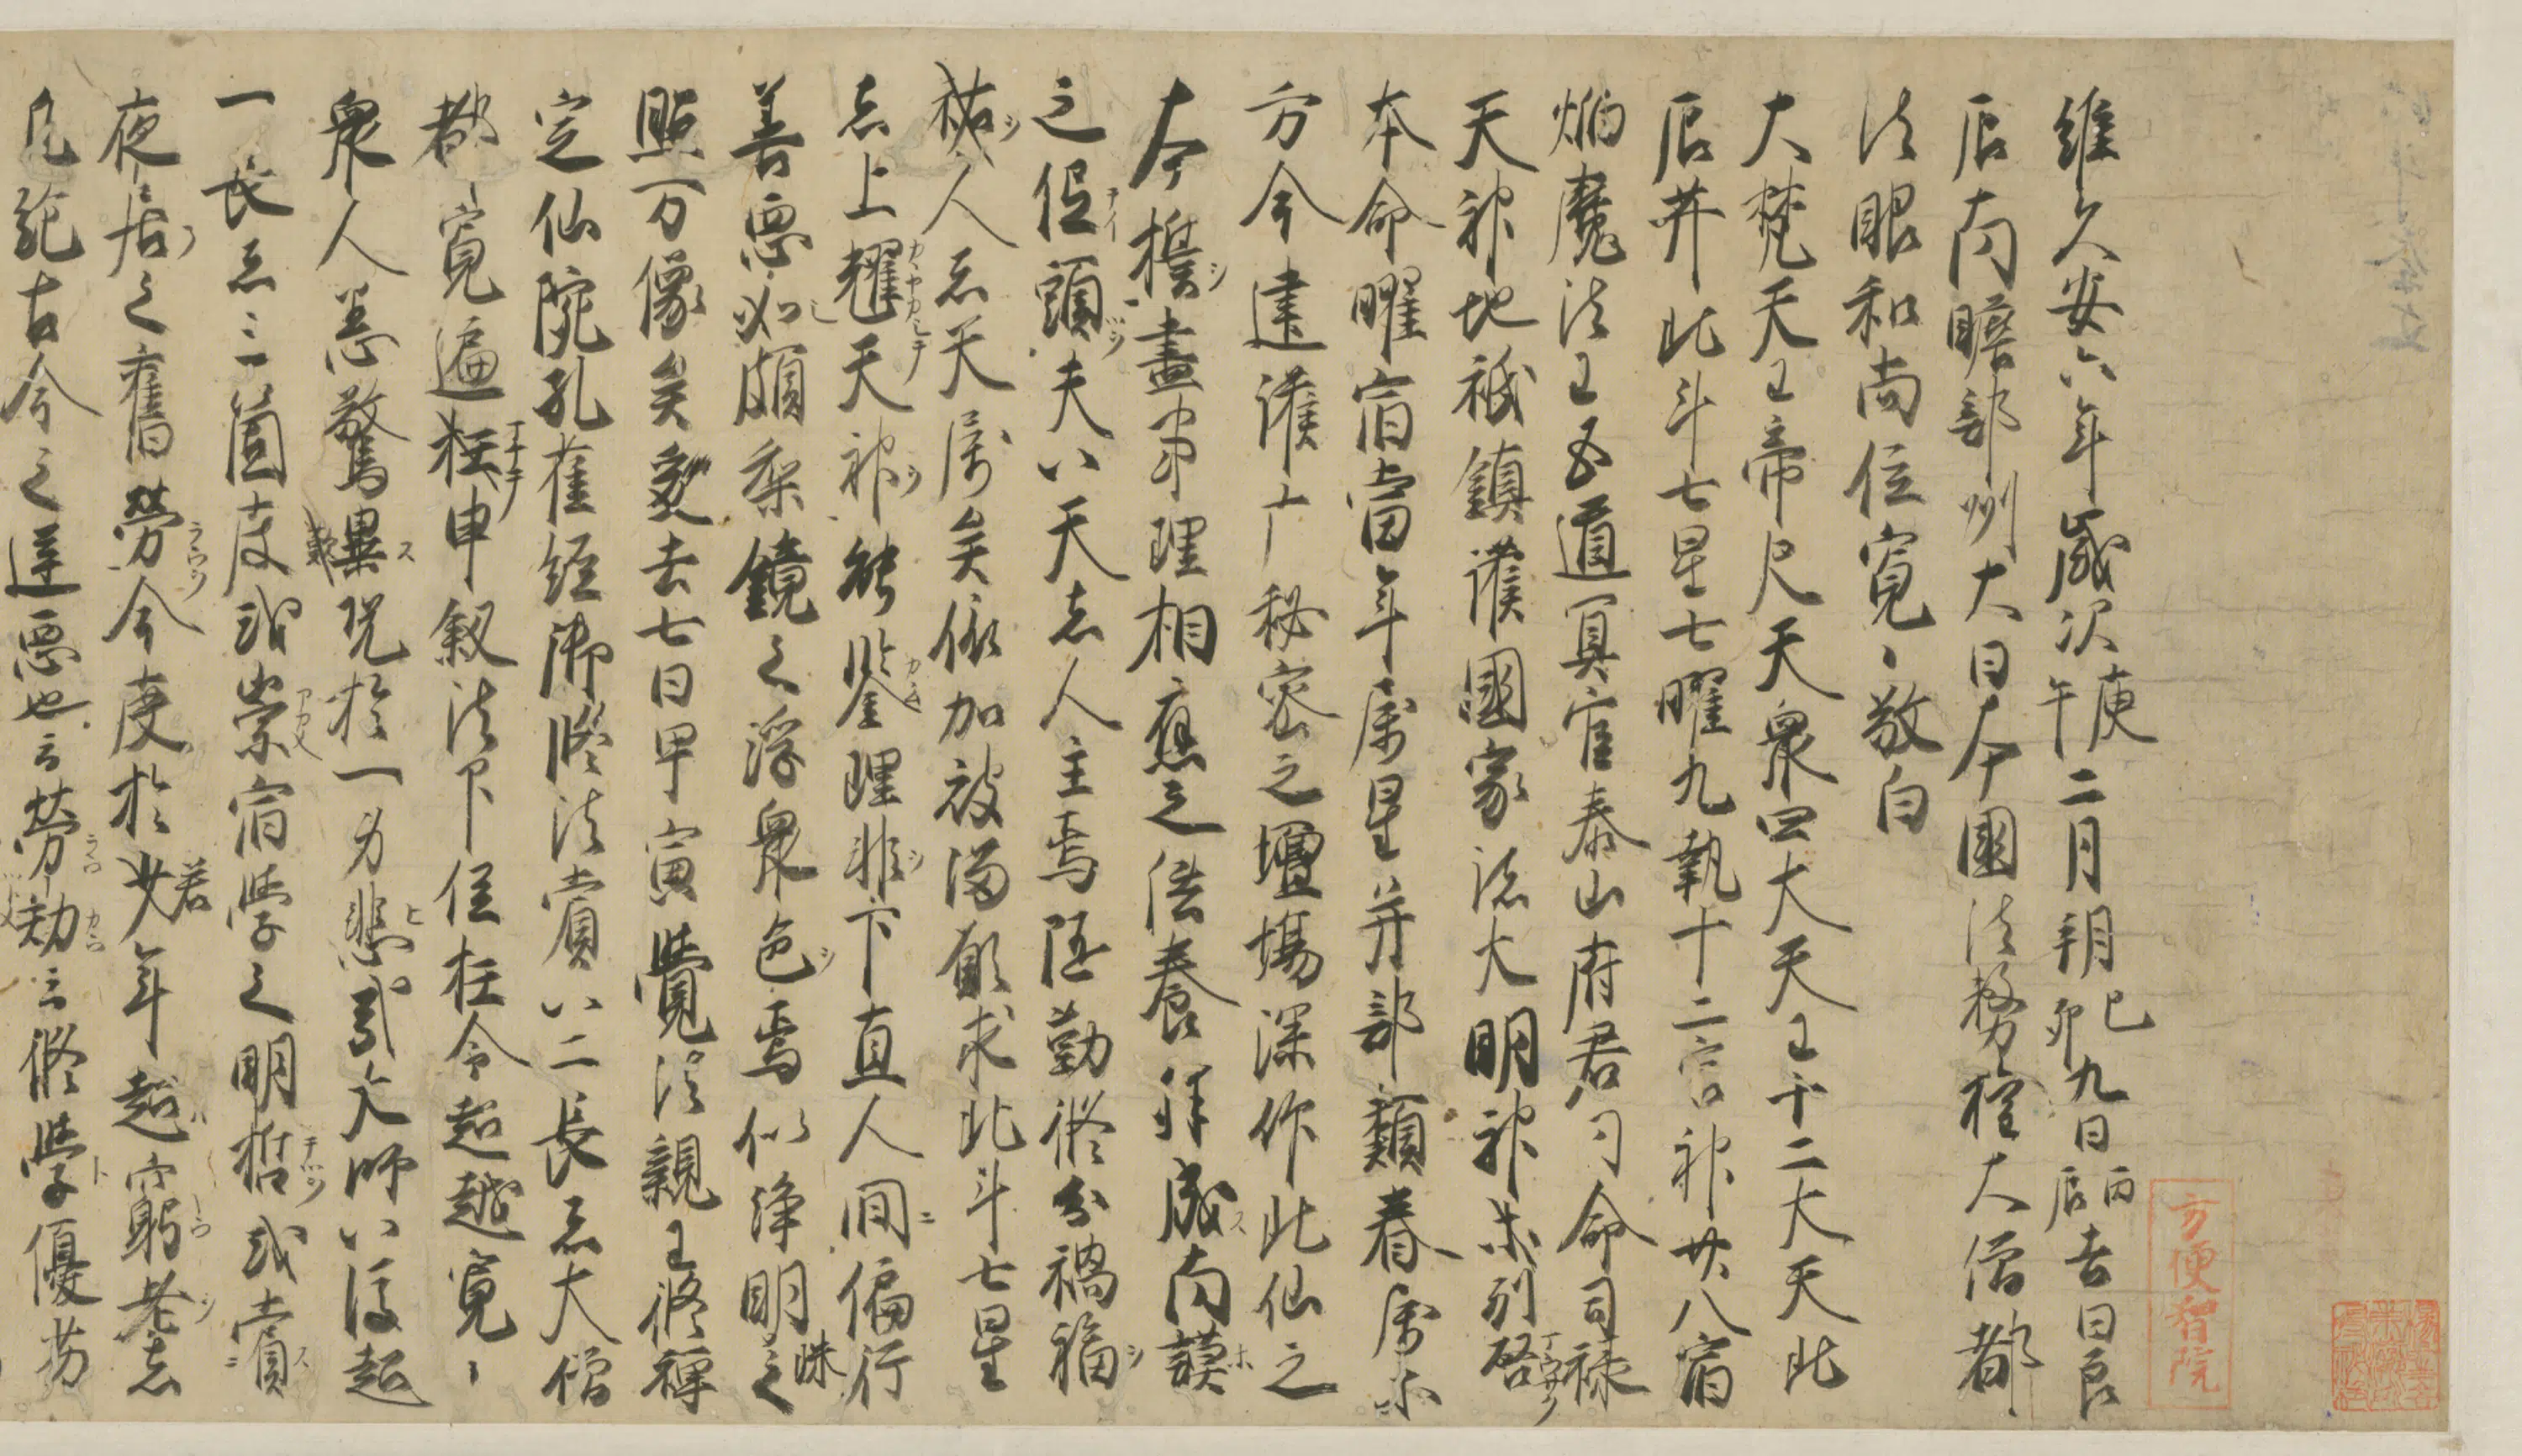 維久安六年歳次庚午二月朔己卯九日丙辰吉日良
辰南瞻部州大日本国法務権大僧都
法眼和尚位寛〻敬白
大梵天王帝尺天衆四大天王十二大天北
辰并北斗七星七曜九執十二宮神廿八宿
焔魔法王五道冥官泰山府君司命司禄
天神地祇鎮護國家諸大明神等列啓
本命曜宿當年属星并部類眷属等
方今建護广秘密之壇場深作北仙之
大誓盡事理相應之供養拜成南謨
之低頭夫以天者人主焉随勤修分禍福
祐人者天属矣依加被満願求北斗七星
者上耀天神能鑒理非下直人間偏行
善悪必頗梨鏡之浮衆色焉似浄明珠之
照万像矣爰去七日甲寅覺法親王修禅
定仙院孔雀経御修法賞以二長者大僧
都〻寛遍抂申叙法印任抂令超越寛〻
衆人咸驚異歎况於一身悲哉大師以後超
一長者三箇度或崇宿学之明哲或賞
夜居之舊勞今度於若少年超窮老者
凡絶古今之違惡也云勞勅云修学優劣
方便智院